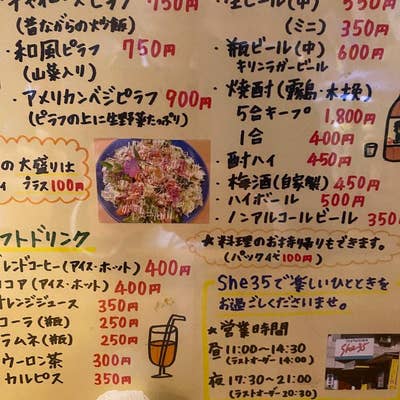 ピラフ 750円
(昔ながらの炒飯)
・和風ピラフ 750円
(山菜入り)
・アメリカンベジピラフ 900円
(ピラフの上に生野菜たっぷり)
の大盛りは
プラス100円
フトドリンク
レンドコーヒー(アイス・ホット) 400円
ココア(アイス・ホット) 400円
オレンジジュース 350円
コーラ(瓶) 250円
ラムネ(瓶) 250円
ウーロン茶 300円
カルピス 350円
生ビール(中) 550円
(ミニ) 350円
・瓶ビール(中) 600円
キリンラガービール
・焼酎(霧島・木挽)
5合キープ 1,800円
1合 400円
・酎ハイ 450円
・梅酒(自家製) 450円
・ハイボール 500円
・ノンアルコールビール 350
★料理のお持帰りもできます。
(パック代100円)
She35で楽しいひとときを
お過ごしくださいませ。
★営業時間
昼 11:00〜14:30
(ラストオーダー14:00)
夜 17:30〜21:00
(ラストオーダー20:30)
She35